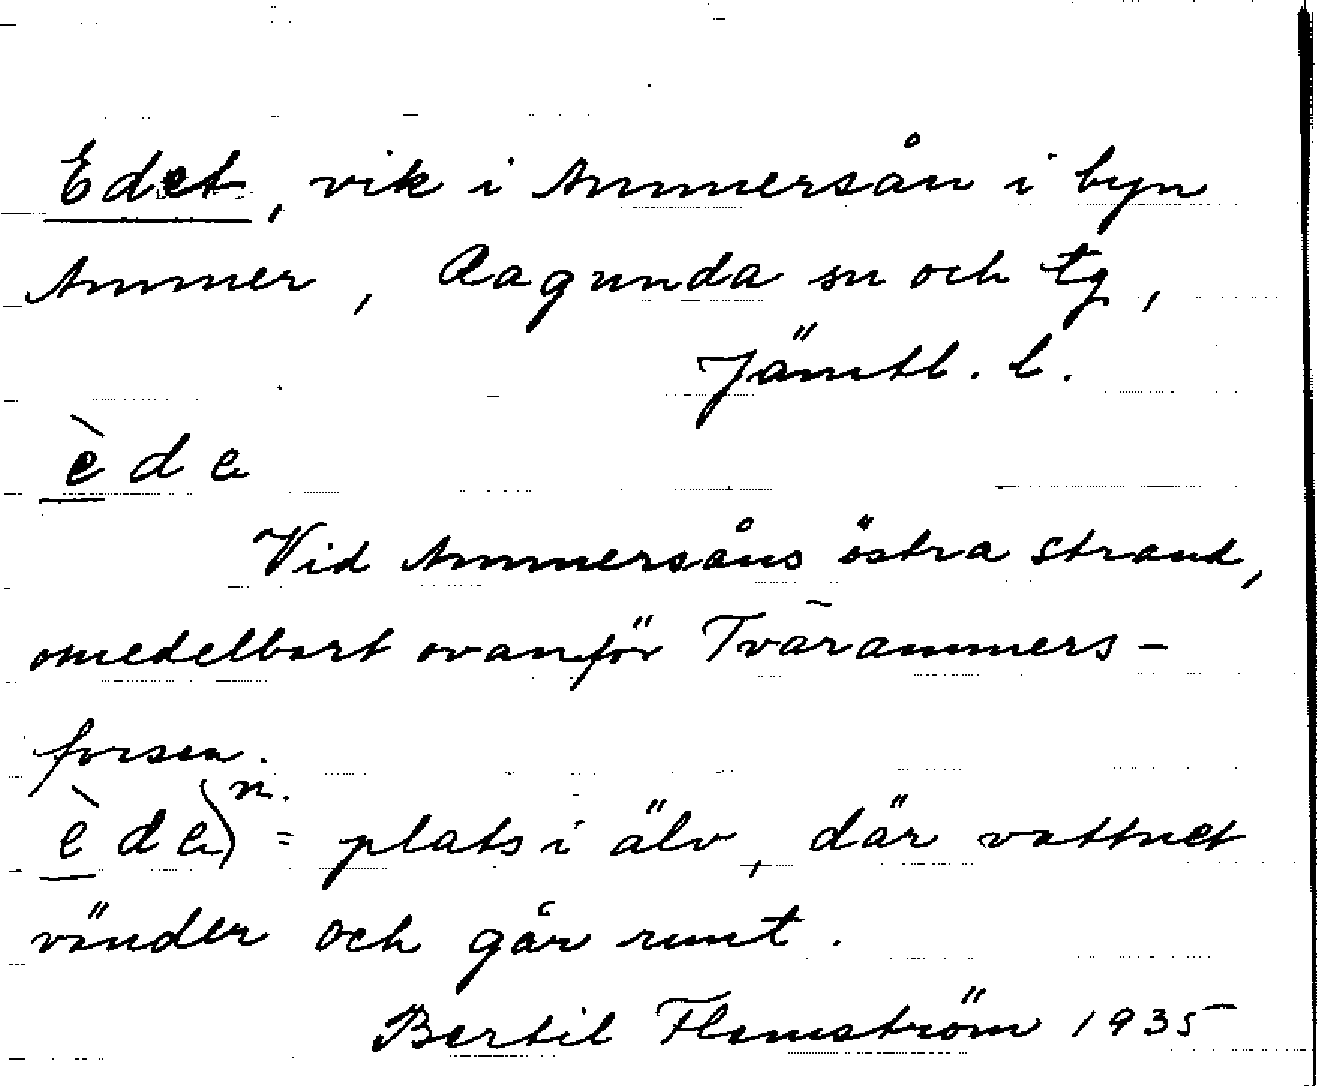 Edet, vik i Ammersån i byn
Ammer, Ragunda sn och tg,
Jämtl. l.
ède
Vid Ammersåns östra strand,
omedelbart ovanför Tvärammers-
forsen.
ède) n. = plats i älv, där vattnet
vänder och går runt.
Bertil Flemström 1935